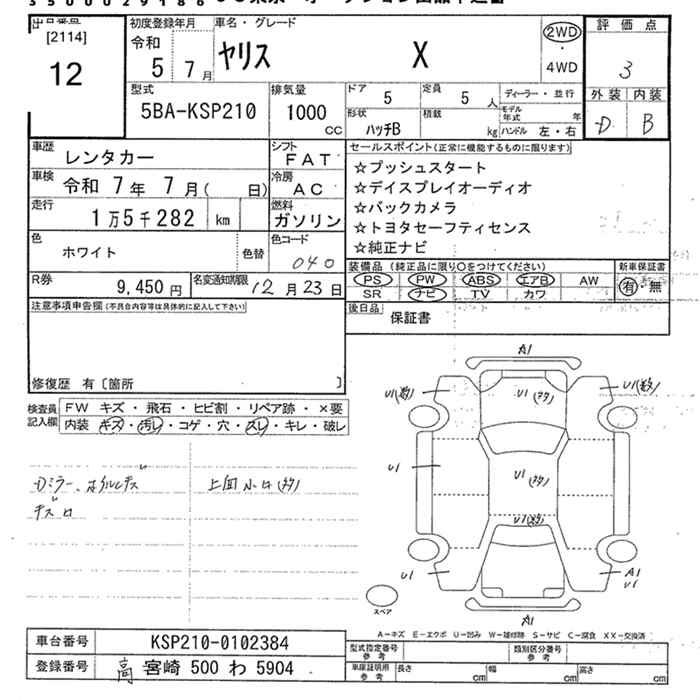 3 5 0 0 0 2 9 1 8 6
[2114]
12
初度登録年月
令和
5 7 月
車名・グレード
ヤリス X
2WD
・
4WD
評価点
3
外装 内装
D B
型式
5BA-KSP210
排気量
1000
CC
ドア
5
定員
5 人
形状
ハッチB
積載
kg
ディーラー・並行
モデル
年式
年
ハンドル 左・右
車歴
レンタカー
シフト
FAT
車検
令和 7 年 7 月( 日)
冷房
AC
走行
1万5千282 km
燃料
ガソリン
色
ホワイト
色替
色コード
040
R券
9,450 円
名変通知期限
12 月 23 日
セールスポイント(正常に機能するものに限ります)
☆プッシュスタート
☆デイスプレイオーディオ
☆バックカメラ
☆トヨタセーフティセンス
☆純正ナビ
装備品 (純正品に限り○をつけてください)
PS PW ABS エアB AW
SR ナビ TV カワ
新車保証書
有・無
後日品
保証書
注意事項申告欄(不具合内容等は具体的に記入して下さい)
修復歴 有〔箇所 〕
検査員
記入欄
FW キズ・飛石・ヒビ割・リペア跡・×要
内装 キズ・汚レ・コゲ・穴・スレ・キレ・破レ
Dミラー
A1
U1
U1
U1
U1
U1
U1
U1
A1
U1
スペア
A1
A-キズ E-エクボ U-凹み W-補修跡 S-サビ C-腐食 XX-交換済
車台番号
KSP210-0102384
登録番号
宮崎 500 わ 5904
型式指定番号
参考
類別区分番号
参考
車庫証明用
参考
長さ
cm
幅
cm
高さ
cm